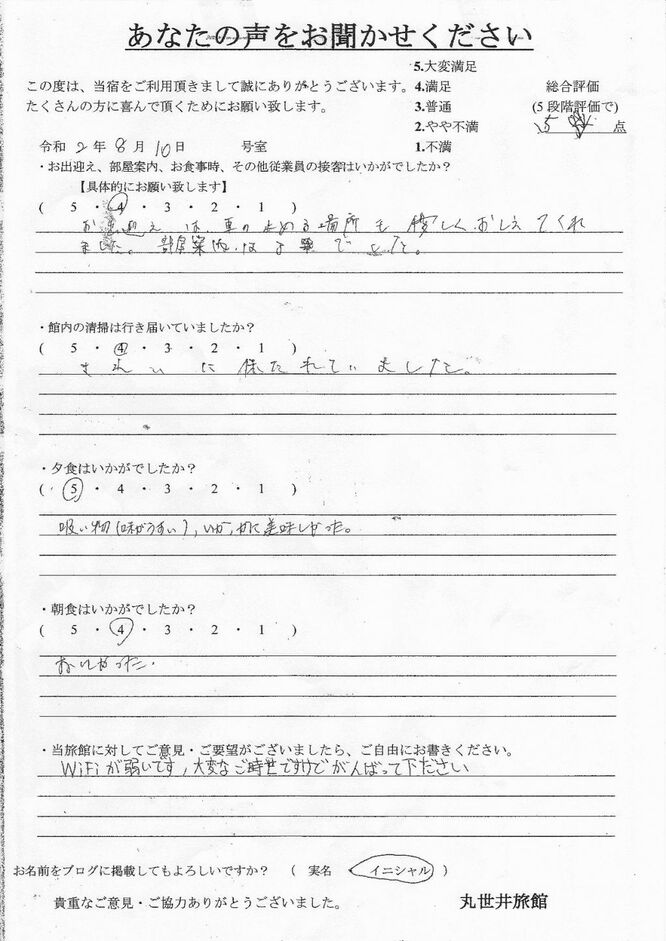 あなたの声をお聞かせください
5.大変満足
この度は、当宿をご利用頂きまして誠にありがとうございます。 4.満足 総合評価
たくさんの方に喜んで頂くためにお願い致します。 3.普通 (5段階評価で)
2.やや不満 5 点
令和 2 年 8 月 10 日 号室 1.不満
・お出迎え、部屋案内、お食事時、その他従業員の接客はいかがでしたか？
【具体的にお願い致します】
( 5 ・ 4 ・ 3 ・ 2 ・ 1 )
お出迎えは、車の止める場所も優しくおしえてくれ
ました。部屋案内は でした。
・館内の清掃は行き届いていましたか？
( 5 ・ 4 ・ 3 ・ 2 ・ 1 )
きれいに保たれていました。
・夕食はいかがでしたか？
( 5 ・ 4 ・ 3 ・ 2 ・ 1 )
吸い物(味がうすい),いか,かに美味しかった。
・朝食はいかがでしたか？
( 5 ・ 4 ・ 3 ・ 2 ・ 1 )
おいしかった.
・当旅館に対してご意見・ご要望がございましたら、ご自由にお書きください。
WiFiが弱いです,大変なご時世ですけどがんばって下ださい
お名前をブログに掲載してもよろしいですか？ ( 実名 ・ イニシャル )
貴重なご意見・ご協力ありがとうございました。 丸世井旅館